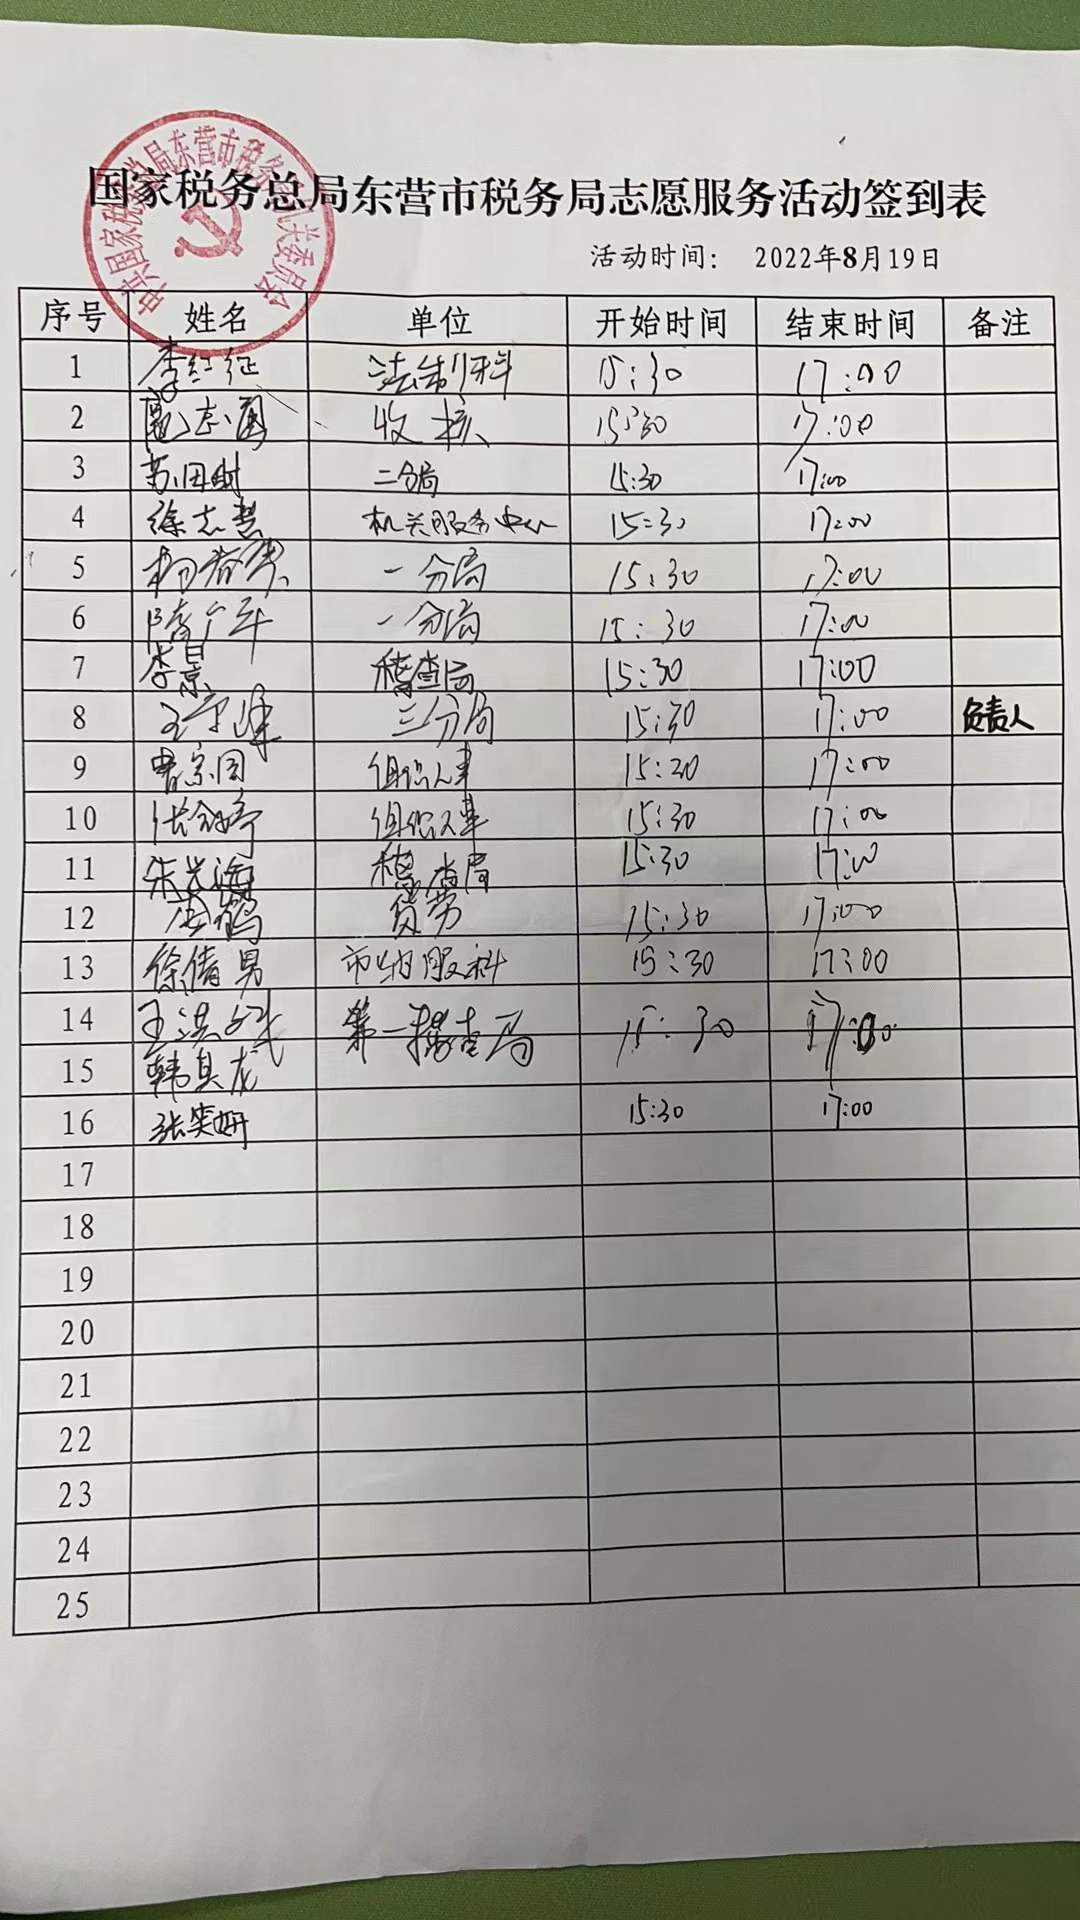 中共国家税务总局东营市税务局机关委员会
国家税务总局东营市税务局志愿服务活动签到表
活动时间： 2022年8月19日
序号 姓名 单位 开始时间 结束时间 备注
1 李红征 法制科 15:30 17:00
2 志国 收核 15:30 17:00
3 苏田时 二分局 15:30 17:00
4 徐志慧 机关服务中心 15:30 17:00
5 杨春 一分局 15:30 17:00
6 隋广军 一分局 15:30 17:00
7 李景 稽查局 15:30 17:00
8 王 峰 三分局 15:30 17:00 负责人
9 曹宗国 组织人事 15:30 17:00
10 组织人事 15:30 17:00
11 朱 海 稽查局 15:30 17:00
12 鹤 货劳 15:30 17:00
13 徐倩男 市纳服科 15:30 17:00
14 王洪 第一稽查局 15:30 17:00
15 韩其龙
16 张奕妍 15:30 17:00
17
18
19
20
21
22
23
24
25